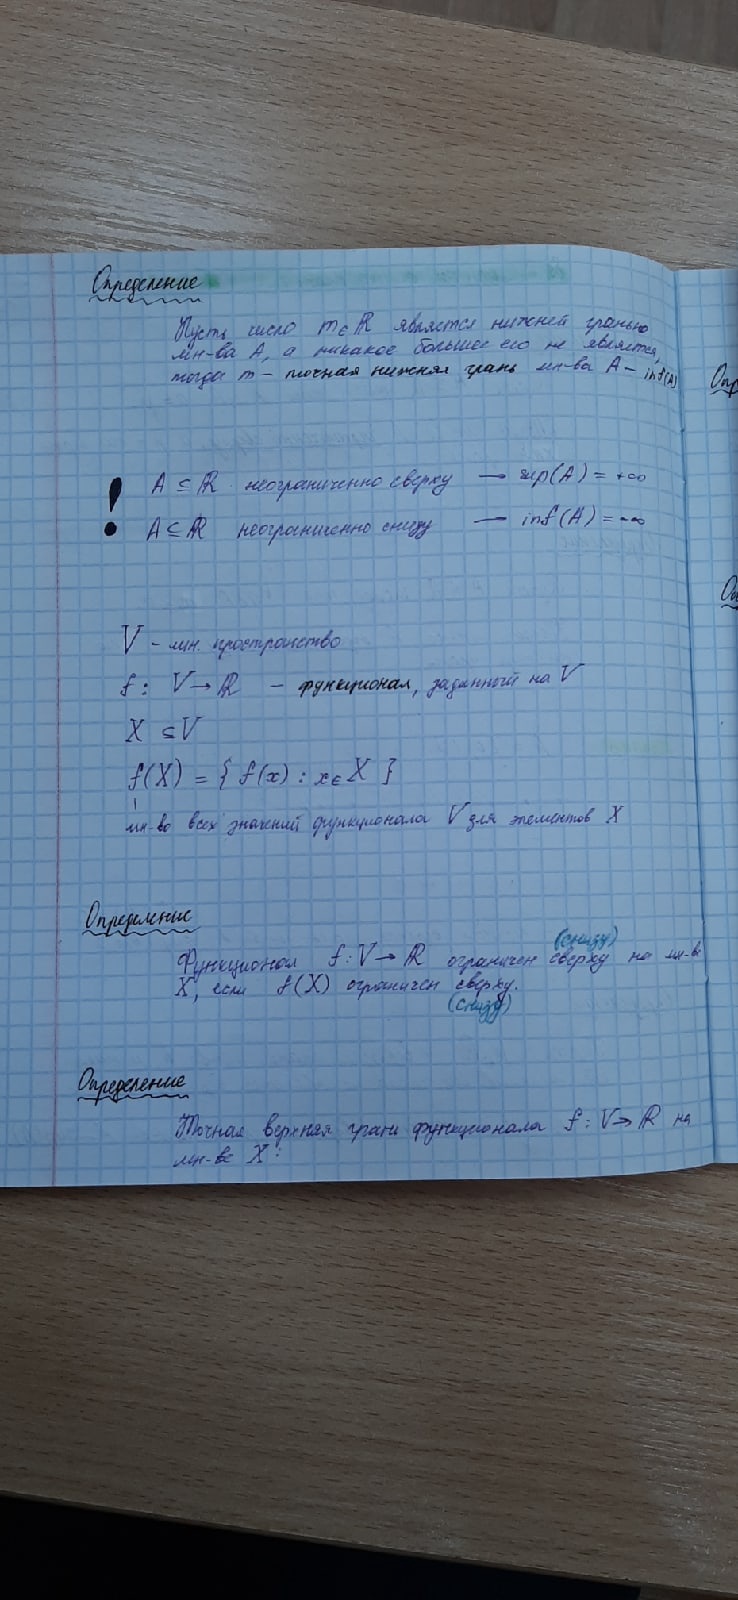 Определение
Пусть число m∈ℝ является нижней гранью
мн-ва A, а никакое большее его не является,
тогда m – точная нижняя грань мн-ва A – inf(A)
! A ⊆ ℝ неограниченно сверху — sup(A) = +∞
A ⊆ ℝ неограниченно снизу — inf(A) = -∞
V – лин. пространство
f: V→ℝ – функционал, заданный на V
X ⊆ V
f(X) = { f(x) : x∈X }
мн-во всех значений функционала V для элементов X
Определение
(снизу)
Функционал f: V→ℝ ограничен сверху на мн-ве
X, если f(X) ограничен сверху.
(снизу)
Определение
Точная верхняя грань функционала f: V→ℝ на
мн-ве X: